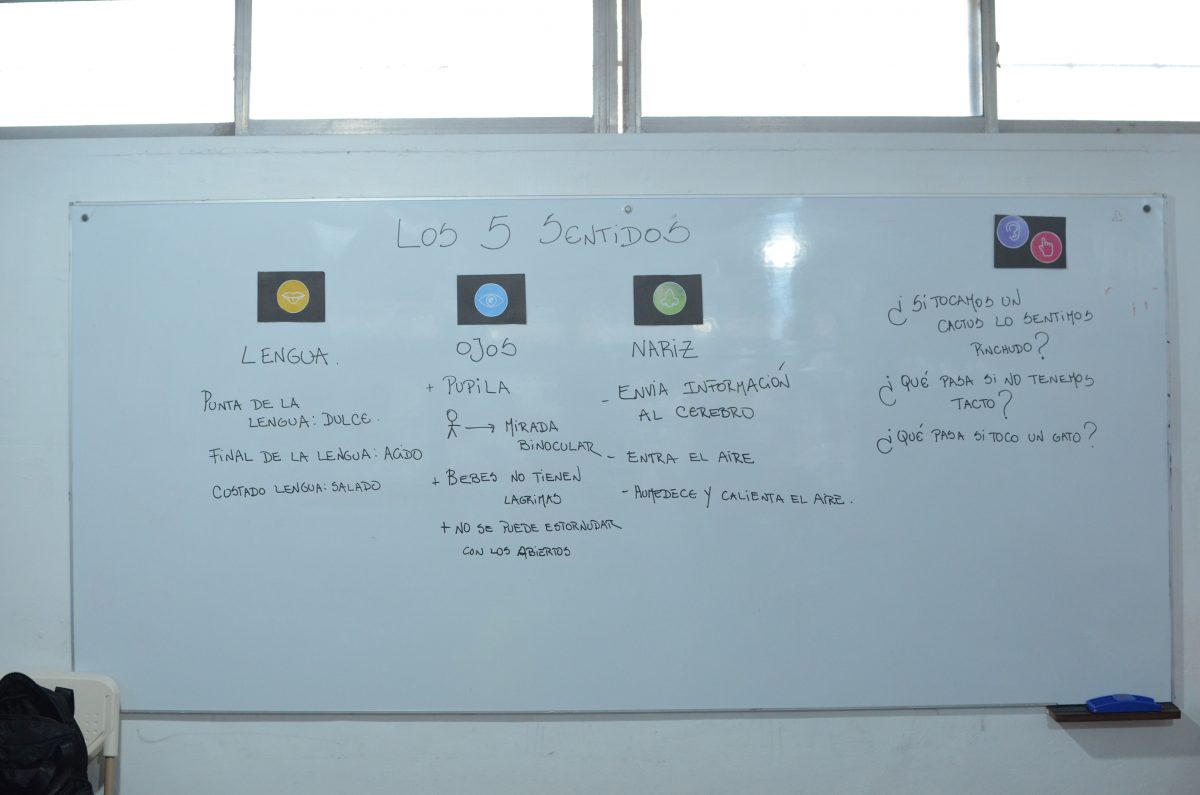 LOS 5 SENTIDOS
LENGUA.
PUNTA DE LA
LENGUA: DULCE.
FINAL DE LA LENGUA: ACIDO
COSTADO LENGUA: SALADO
OJOS
+ PUPILA
→ MIRADA
BINOCULAR
+ BEBES NO TIENEN
LAGRIMAS
+ NO SE PUEDE ESTORNUDAR
CON LOS ABIERTOS
NARIZ
- ENVÍA INFORMACIÓN
AL CEREBRO
- ENTRA EL AIRE
- HUMEDECE Y CALIENTA EL AIRE.
¿SI TOCAMOS UN
CACTUS LO SENTIMOS
PINCHUDO?
¿QUÉ PASA SI NO TENEMOS
TACTO?
¿QUÉ PASA SI TOCO UN GATO?